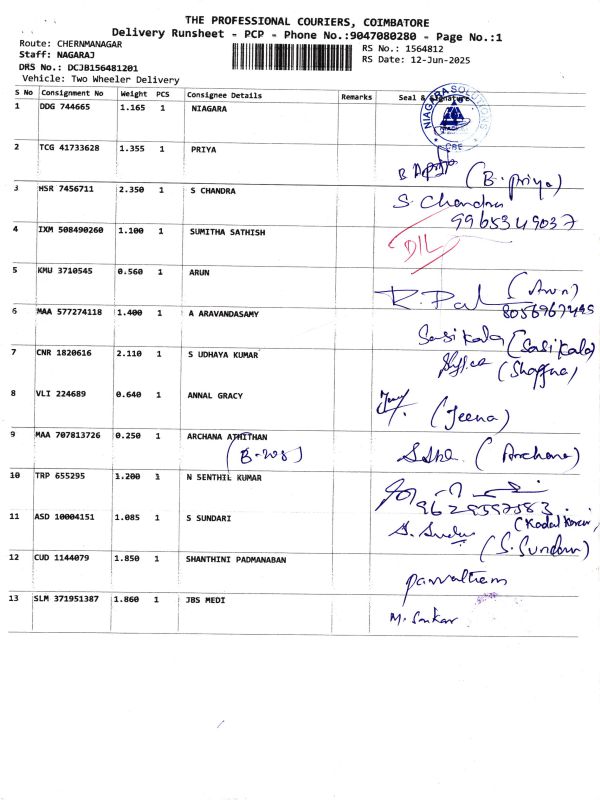 THE PROFESSIONAL COURIERS, COIMBATORE
Delivery Runsheet - PCP - Phone No.:9047080280 - Page No.:1
Route: CHERNMANAGAR RS No.: 1564812
Staff: NAGARAJ RS Date: 12-Jun-2025
DRS No.: DCJB156481201
Vehicle: Two Wheeler Delivery
S No Consignment No Weight PCS Consignee Details Remarks Seal & Signature
1 DDG 744665 1.165 1 NIAGARA NIAGARA SOLUTIONS CBE
2 TCG 41733628 1.355 1 PRIYA
(B. priya)
3 HSR 7456711 2.350 1 S CHANDRA S. Chandra
9965349037
4 IXM 508490260 1.100 1 SUMITHA SATHISH D/L
5 KMU 3710545 0.560 1 ARUN (Arun)
8056967495
6 MAA 577274118 1.400 1 A ARAVANDASAMY
Sasikala (Sasikala)
7 CNR 1820616 2.110 1 S UDHAYA KUMAR
8 VLI 224689 0.640 1 ANNAL GRACY (Jeena)
9 MAA 707813726 0.250 1 ARCHANA ATHITHAN
(Archana)
10 TRP 655295 1.200 1 N SENTHIL KUMAR
11 ASD 10004151 1.085 1 S SUNDARI
(S. Sundari)
12 CUD 1144079 1.850 1 SHANTHINI PADMANABAN
13 SLM 371951387 1.860 1 JBS MEDI
M. Sankar